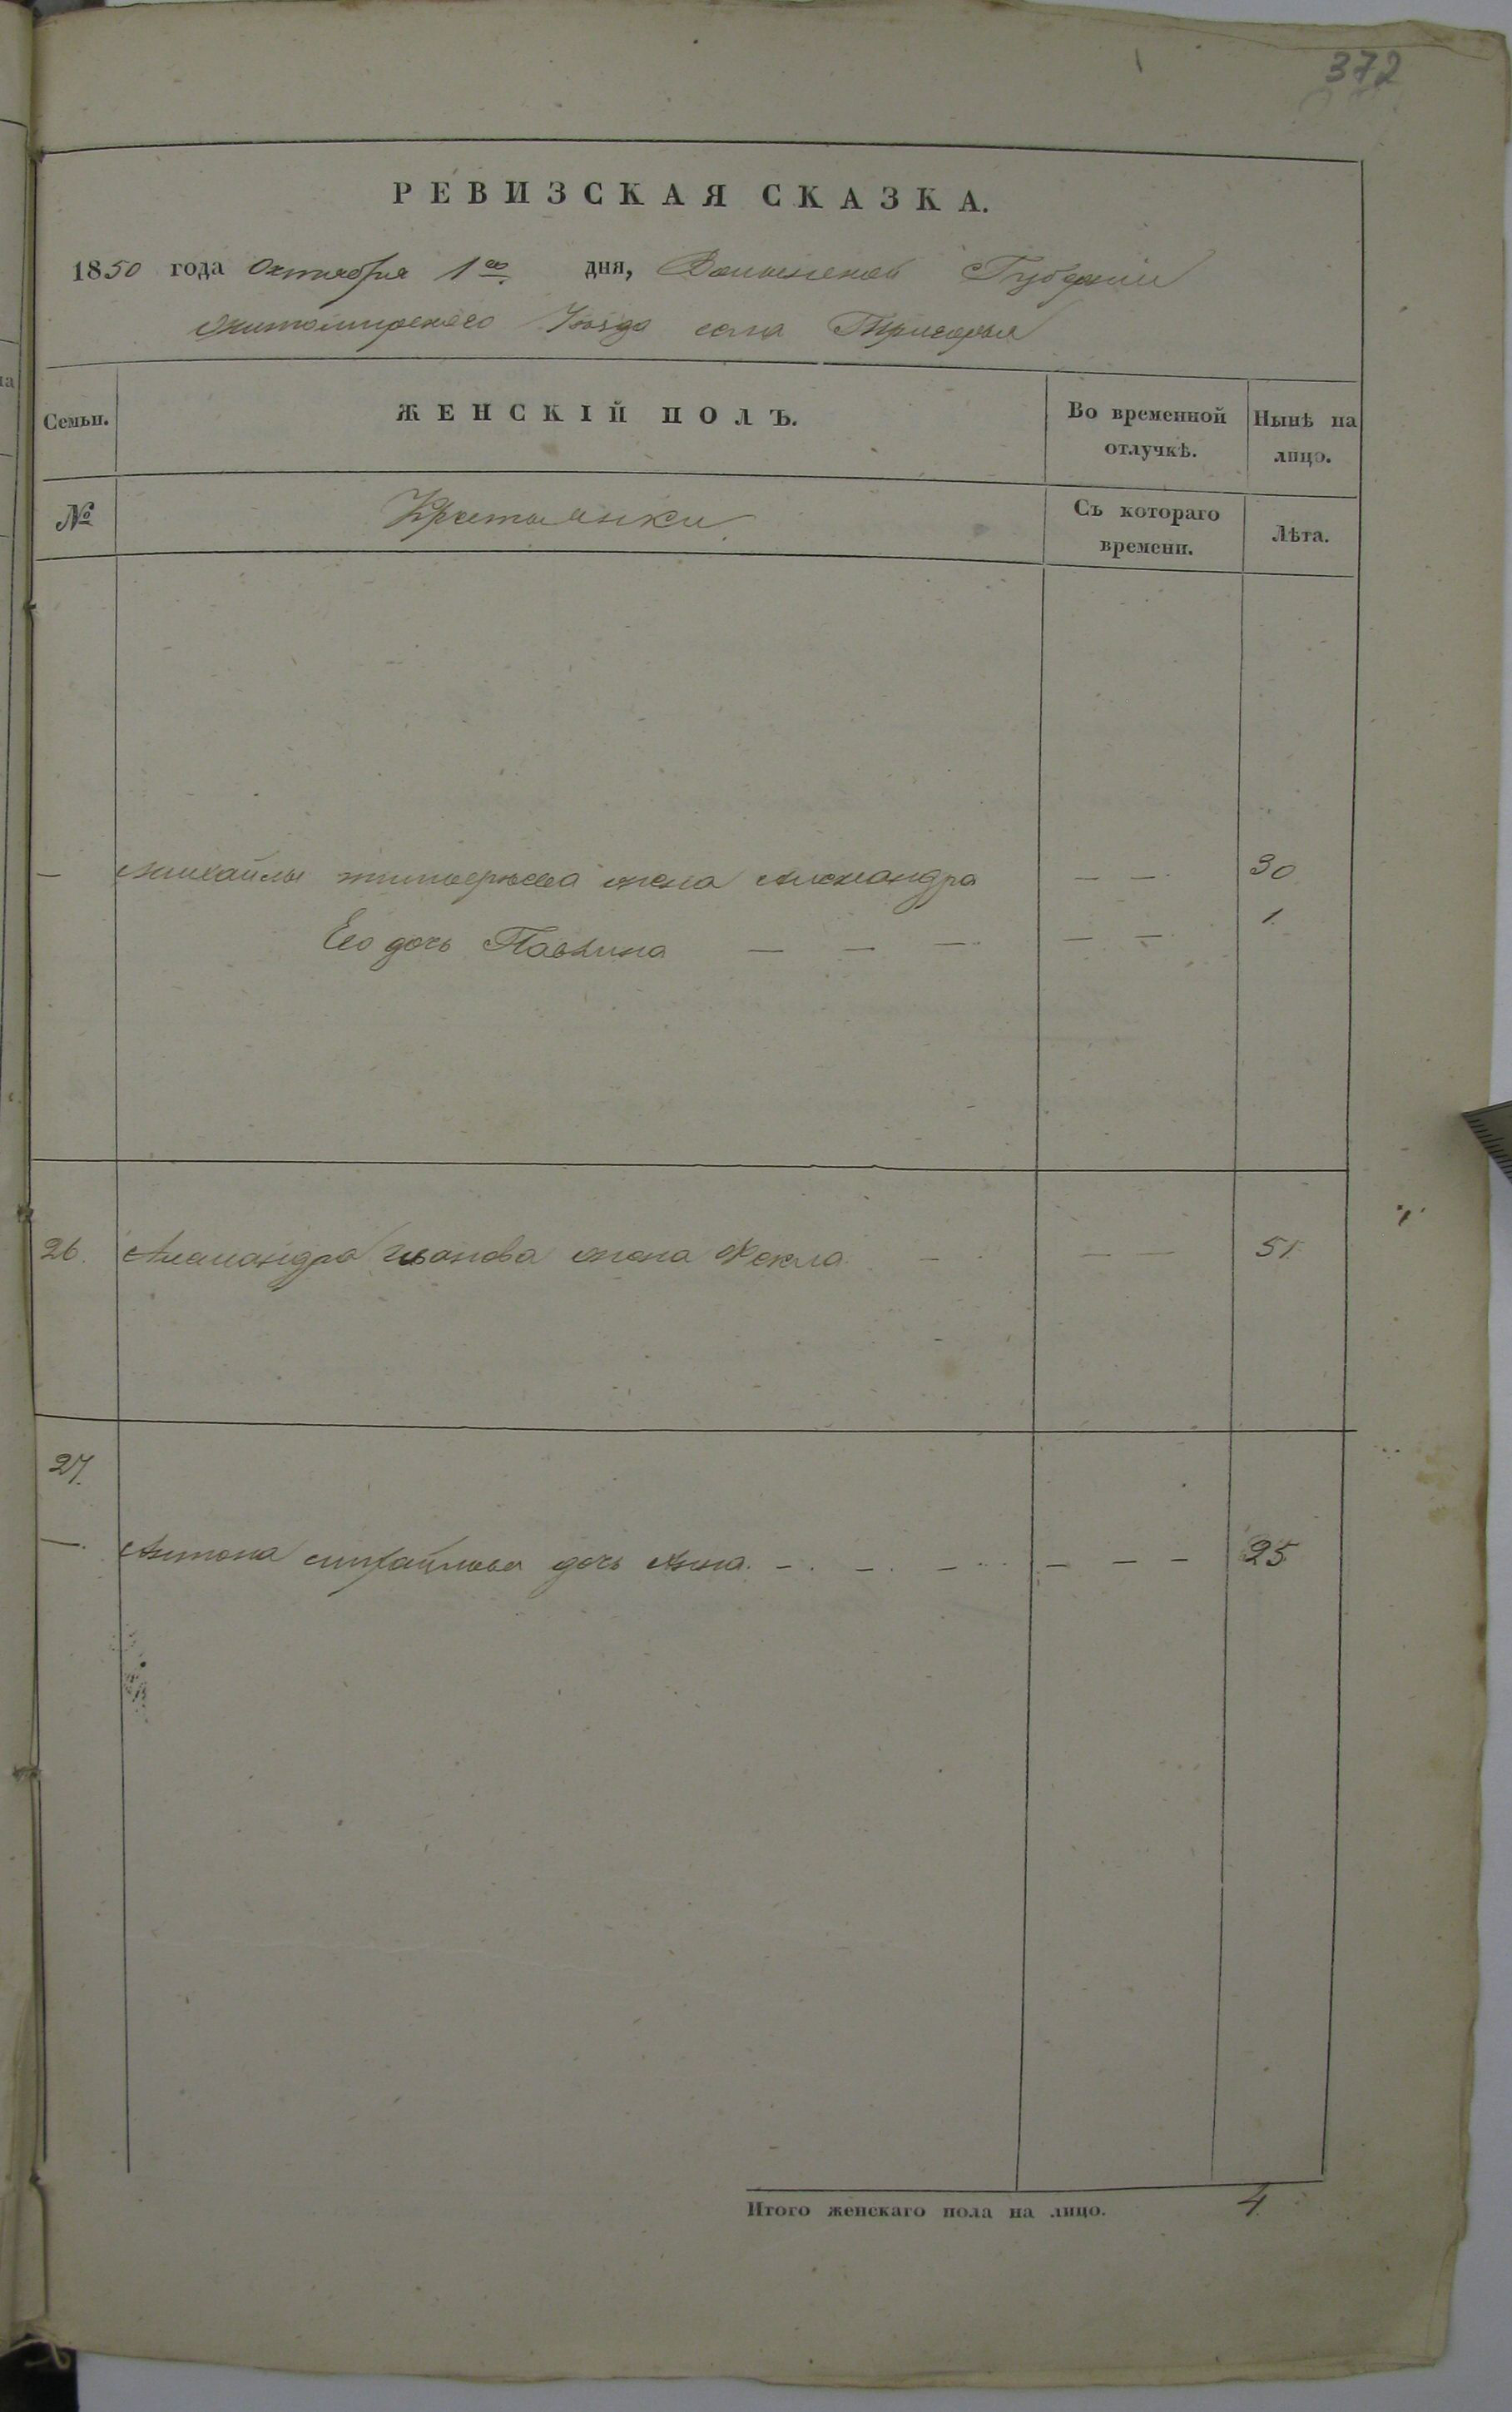 372
РЕВИЗСКАЯ СКАЗКА.
1850 года Октября 1го дня, Волынской Губерніи
Житомирского Уѣзда села Тригорья
Семьи. ЖЕНСКІЙ ПОЛЪ. Во временной отлучкѣ. Нынѣ на лицо.
№ Крестьянки Съ котораго времени. Лѣта.
— Михайлы жена Александра — — 30
Его дочь Павлина — — — — — 1
26. Александра Иванова жена Фекла — — — 51
27.
—. Антона Михайлова дочь Анна. — — — — — — 25
Итого женскаго пола на лицо. 4